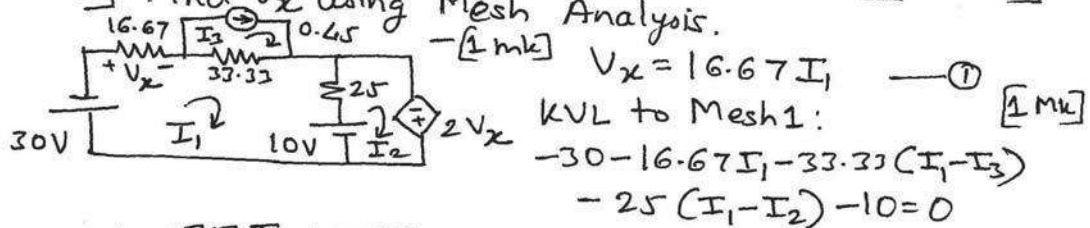 using Mesh Analysis.
-[1 mk]
16.67
I₃
0.45
+ Vx -
33.33
25
2Vx
30V
I₁
10V
I₂
Vx = 16.67 I₁ —①
KVL to Mesh 1: [1 Mk]
-30-16.67I₁-33.33(I₁-I₃)
- 25 (I₁-I₂) -10=0